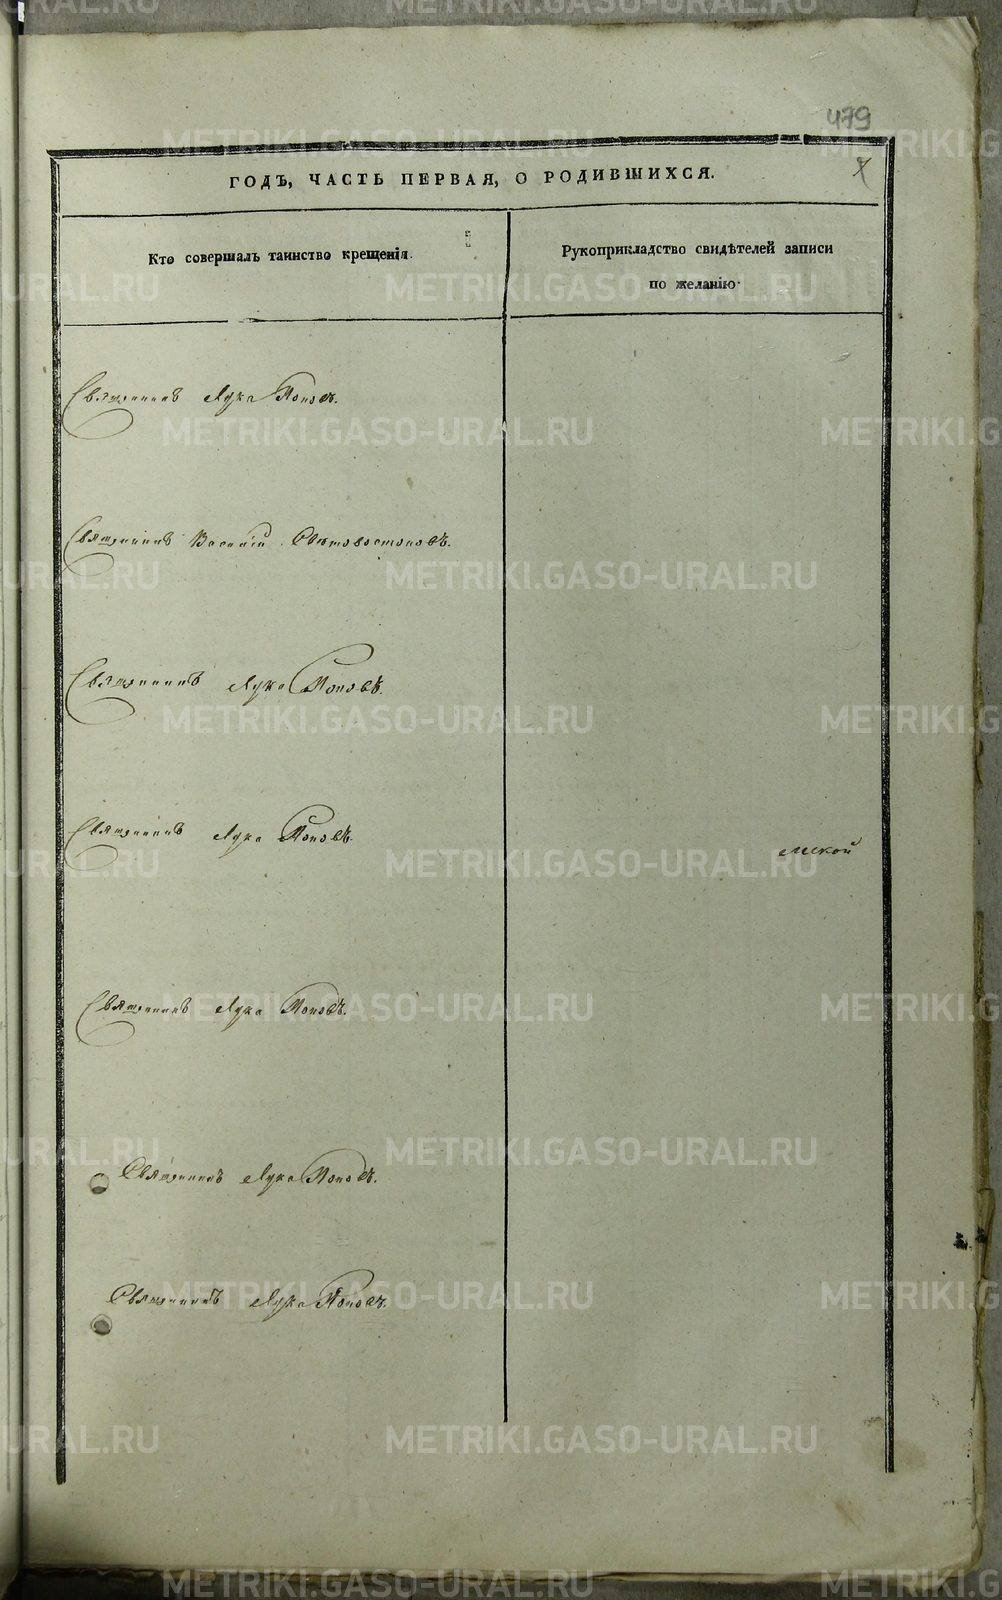 479
7
ГОДЪ, ЧАСТЬ ПЕРВАЯ, О РОДИВШИХСЯ.
Кто совершалъ таинство крещенія.
Рукоприкладство свидѣтелей записи
по желанію.
Священникъ Лука Поповъ.
Священникъ Василій Свѣтовостоковъ.
Священникъ Лука Поповъ.
Священникъ Лука Поповъ.
мской
Священникъ Лука Поповъ.
Священникъ Лука Поповъ.
Священникъ Лука Поповъ.
METRIKI.GASO-URAL.RU